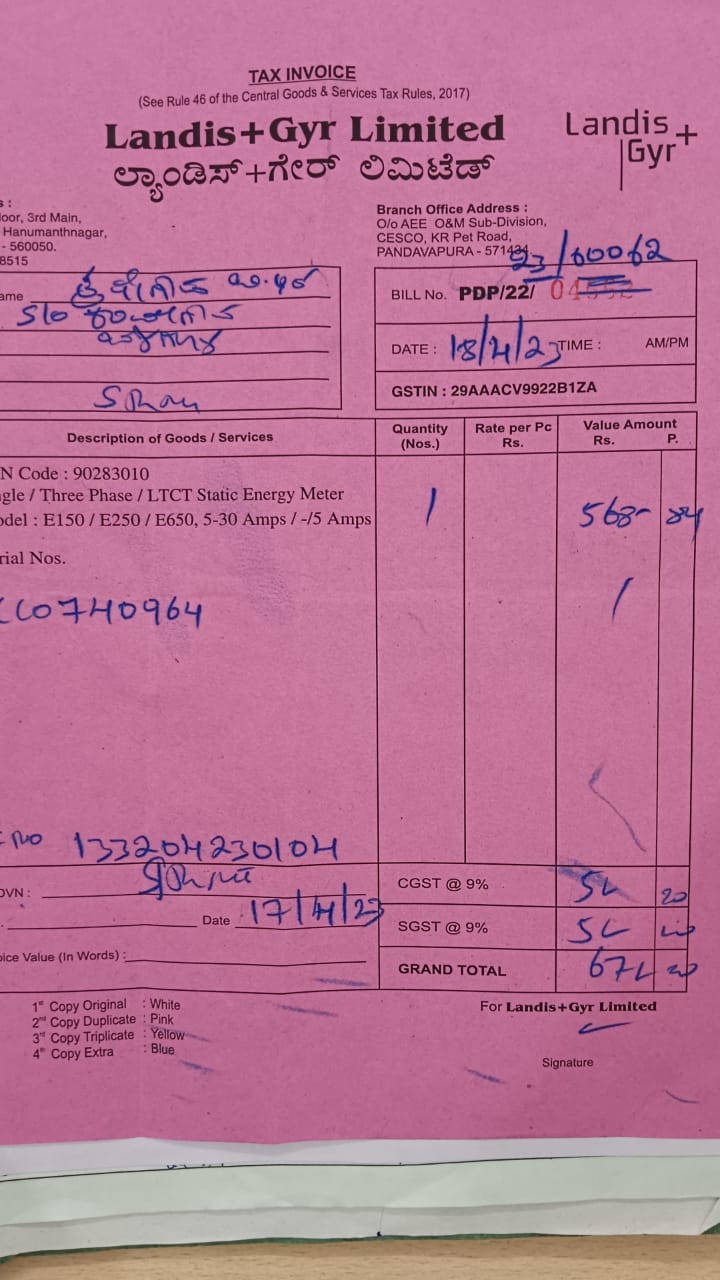 TAX INVOICE
(See Rule 46 of the Central Goods & Services Tax Rules, 2017)
Landis+Gyr Limited
ಲ್ಯಾಂಡಿಸ್+ಗೇರ್ ಲಿಮಿಟೆಡ್
Landis
Gyr+
s :
oor, 3rd Main,
Hanumanthnagar,
- 560050.
8515
Branch Office Address :
O/o AEE O&M Sub-Division,
CESCO, KR Pet Road,
PANDAVAPURA - 571434
23/60062
ame
S/o
BILL No. PDP/22/
DATE : 18/4/23 TIME : AM/PM
GSTIN : 29AAACV9922B1ZA
Description of Goods / Services
Quantity (Nos.)
Rate per Pc Rs.
Value Amount Rs. P.
N Code : 90283010
gle / Three Phase / LTCT Static Energy Meter
odel : E150 / E250 / E650, 5-30 Amps / -/5 Amps
1
568- 84
rial Nos.
0740964
No 133204230104
OVN :
Date 17/4/23
oice Value (In Words) :
CGST @ 9% 20
SGST @ 9%
GRAND TOTAL
1st Copy Original : White
2nd Copy Duplicate : Pink
3rd Copy Triplicate : Yellow
4th Copy Extra : Blue
For Landis+Gyr Limited
Signature